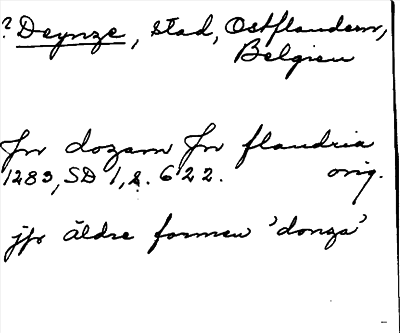 ? Deynze, stad, Ostflandern,
Belgien
Jn dozam Jn flandria
1283, SD 1, s. 622. orig.
jfr äldre formen 'donza'